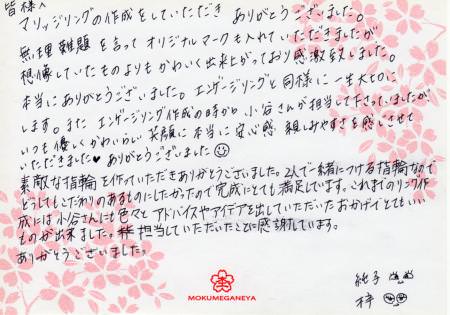 皆様へ
マリッジリングの作成をしていただき ありがとうございました。
無理難題を言って オリジナルマークも入れていただきましたが
想像していたものよりもかわいく出来上がっており感激致しました。
本当にありがとうございました。エンゲージリングと同様に一生大切に
します。また エンゲージリング作成の時から小谷さんが担当して下さっていましたが
いつも優しくかわいらしい笑顔に本当に安心感 親しみやすさを感じさせて
いただきました♥ ありがとうございました☺
素敵な指輪を作っていただきありがとうございました。2人で一緒につける指輪なので
どうしてもこだわりのあるものにしたかったので完成にとても満足しています。これまでのリング作
成には小谷さんにも色々と アドバイスやアイデアを出していただいたおかげでとてもいい
ものが出来ました。担当していただいたことに感謝しています。
ありがとうございました。
純子
梓
MOKUMEGANEYA